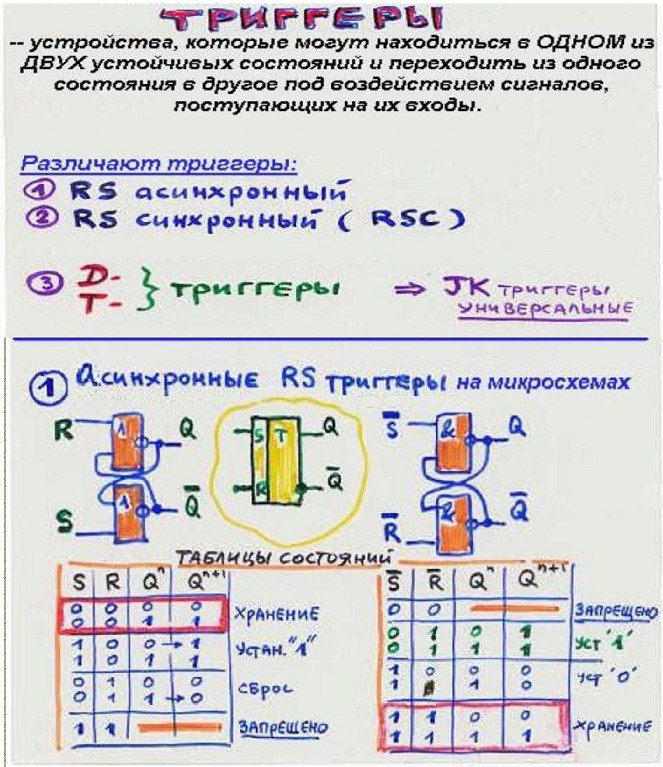 ТРИГГЕРЫ
-- устройства, которые могут находиться в ОДНОМ из
ДВУХ устойчивых состояний и переходить из одного
состояния в другое под воздействием сигналов,
поступающих на их входы.
Различают триггеры:
① RS асинхронный
② RS синхронный ( RSC )
③ D- T- } триггеры ⇒ JK триггеры
универсальные
① Асинхронные RS триггеры на микросхемах
R 1 Q S T Q S̅ & Q
S 1 Q̅ R Q̅ R̅ & Q̅
Таблицы состояний
S R Qⁿ Qⁿ⁺¹
0 0 0 0
0 0 1 1
хранение
1 0 0 → 1
1 0 1 1
Устан. "1"
0 1 0 0
0 1 1 → 0
сброс
1 1
запрещено
S̅ R̅ Qⁿ Qⁿ⁺¹
0 0
запрещено
0 1 0 1
0 1 1 1
Уст "1"
1 0 0 0
1 1 0
уст "0"
1 1 0 0
1 1 1 1
хранение